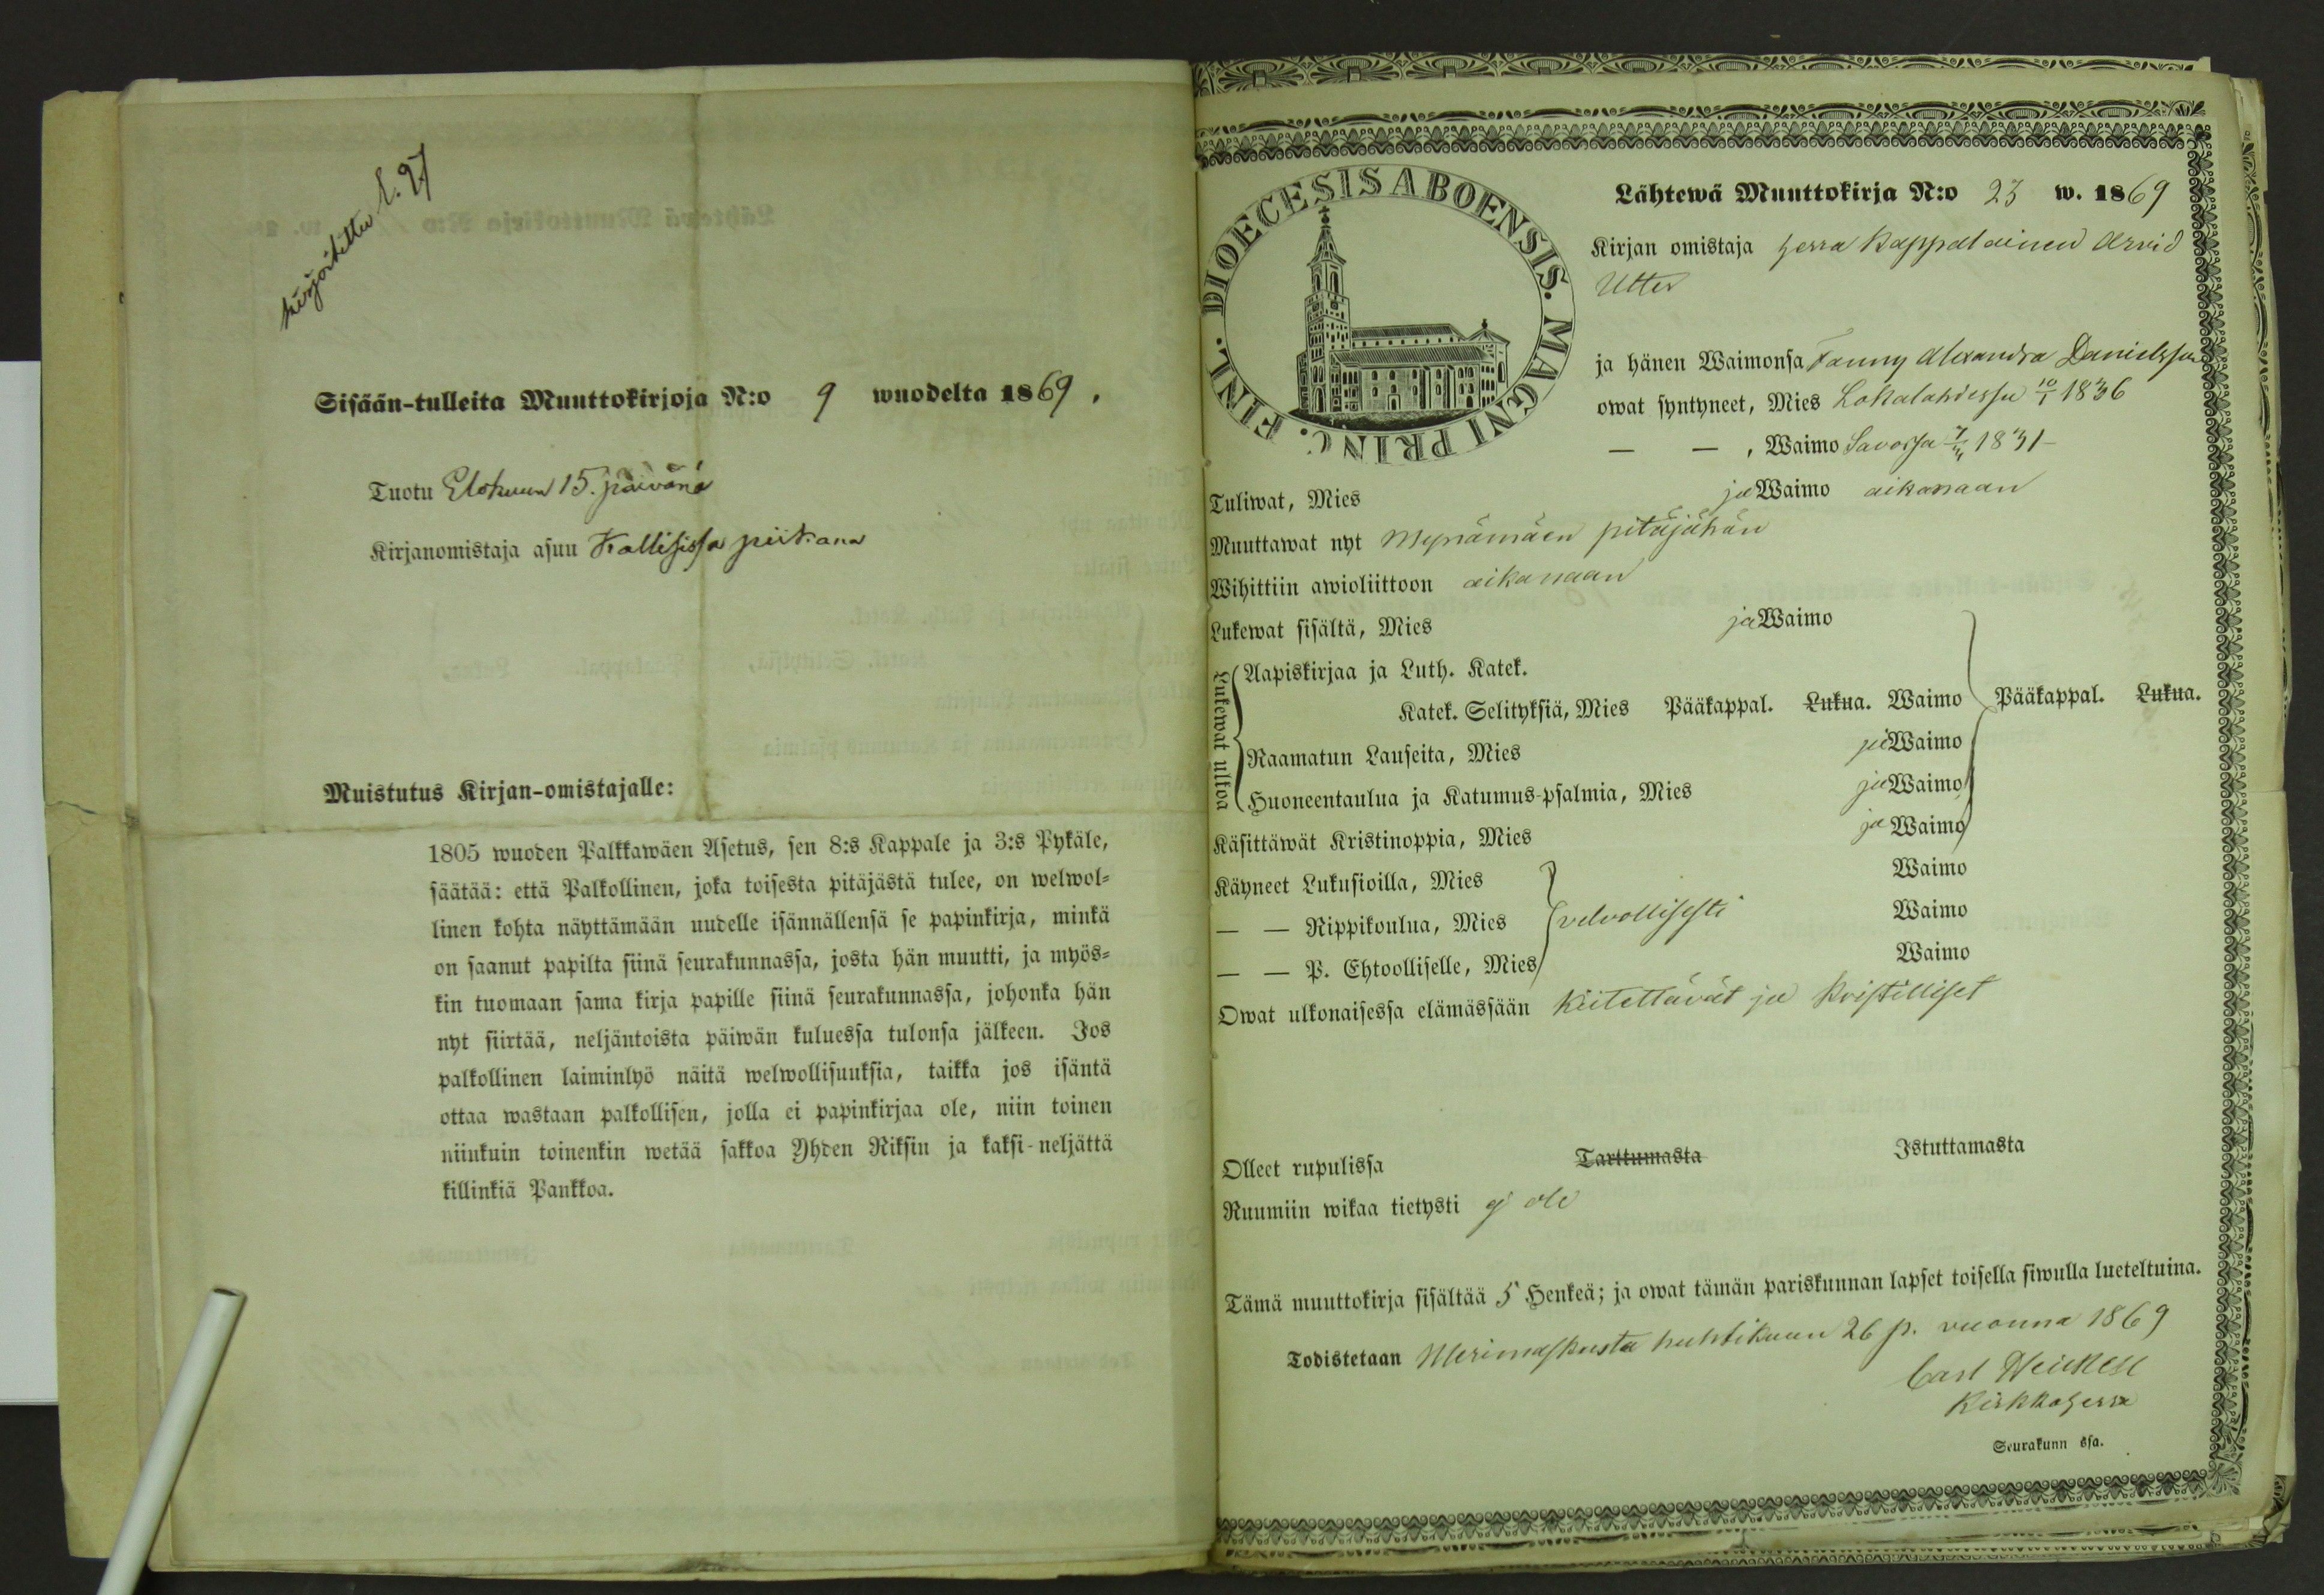 kirjoitettu S. 97
Sisään-tulleita Muuttokirjoja N:o 9 wuodelta 1869.
Tuotu Elokuun 15. päivänä
Kirjanomistaja asuu Kallisissa piikana
Muistutus Kirjan-omistajalle:
1805 wuoden Palkkawäen Asetus, sen 8:s Kappale ja 3:s Pykäle,
säätää: että Palkollinen, joka toisesta pitäjästä tulee, on welwol=
linen kohta näyttämään uudelle isännällensä se papinkirja, minkä
on saanut papilta siinä seurakunnassa, josta hän muutti, ja myös=
kin tuomaan sama kirja papille siinä seurakunnassa, johonka hän
nyt siirtää, neljäntoista päiwän kuluessa tulonsa jälkeen. Jos
palkollinen laiminlyö näitä welwollisuuksia, taikka jos isäntä
ottaa wastaan palkollisen, jolla ei papinkirjaa ole, niin toinen
niinkuin toinenkin wetää sakkoa Yhden Riksin ja kaksi-neljättä
killinkiä Pankkoa.
DIOECESIS ABOENSIS. MAGNI PRINC. FINL.
Lähtewä Muuttokirja N:o 23 w. 1869
Kirjan omistaja herra Kappalainen Arvid
Utter
ja hänen Waimonsa Fanny Alexandra Danielsson
owat syntyneet, Mies Lokalahdessa 10/1 1836
— — , Waimo Savossa 1831
Tuliwat, Mies ja Waimo aikanaan
Muuttawat nyt Mynämäen pitäjähän
Wihittiin awioliittoon aikanaan
Lukewat sisältä, Mies ja Waimo
Lukewat ulkoa
Aapiskirjaa ja Luth. Katek.
Katek. Selityksiä, Mies Pääkappal. Lukua. Waimo Pääkappal. Lukua.
Raamatun Lauseita, Mies ja Waimo
Huoneentaulua ja Katumus-psalmia, Mies ja Waimo
Käsittäwät Kristinoppia, Mies ja Waimo
Käyneet Lukusioilla, Mies Waimo
— — Rippikoulua, Mies velvollisesti Waimo
— — P. Ehtoolliselle, Mies Waimo
Owat ulkonaisessa elämässään kiitettävät ja kristilliset
Olleet rupulissa Tarttumasta Istuttamasta
Ruumiin wikaa tietysti ej ole
Tämä muuttokirja sisältää 5 Henkeä; ja owat tämän pariskunnan lapset toisella siwulla lueteltuina.
Todistetaan Merimaskusta huhtikuun 26 p. vuonna 1869
Carl
Kirkkoherra
Seurakunn ssa.